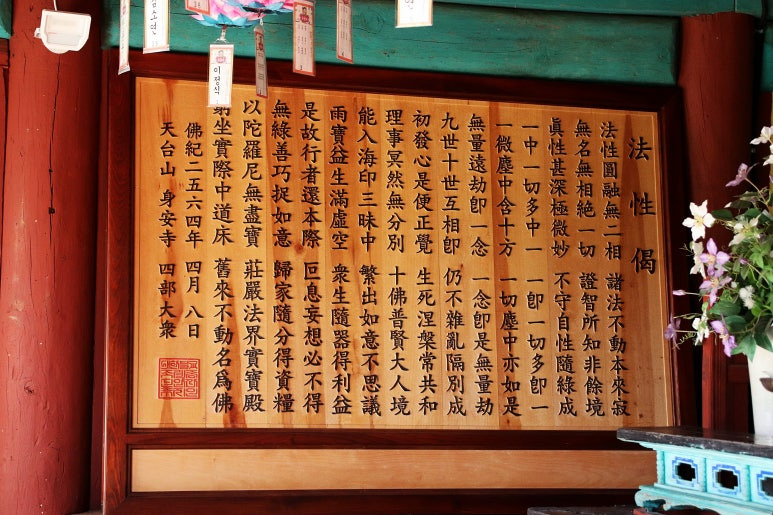 이정식
소연
法性偈
法性圓融無二相 諸法不動本來寂
無名無相絕一切 證智所知非餘境
眞性甚深極微妙 不守自性隨緣成
一中一切多中一 一卽一切多卽一
一微塵中含十方 一切塵中亦如是
無量遠劫卽一念 一念卽是無量劫
九世十世互相卽 仍不雜亂隔別成
初發心是便正覺 生死涅槃常共和
理事冥然無分別 十佛普賢大人境
能入海印三昧中 繁出如意不思議
雨寶益生滿虛空 衆生隨器得利益
是故行者還本際 叵息妄想必不得
無緣善巧捉如意 歸家隨分得資糧
以陀羅尼無盡寶 莊嚴法界實寶殿
窮坐實際中道床 舊來不動名爲佛
佛紀二五六四年 四月 八日
天台山 身安寺 四部大衆